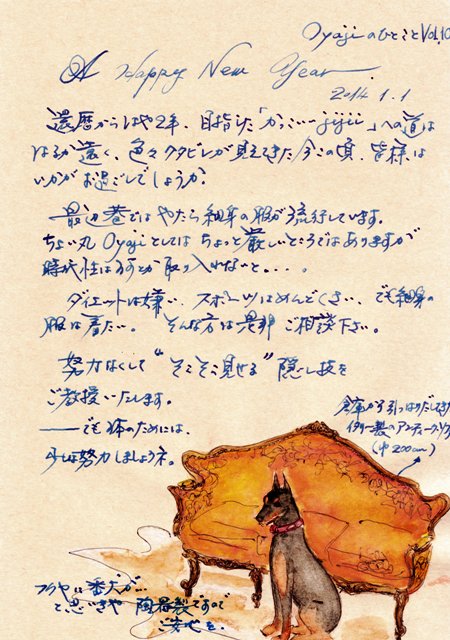 Oyajiのひとこと Vol.10
A Happy New Year
2014.1.1
還暦からはや2年、目指した「かっこいいjijii」への道は
はるか遠く、色々クタビレが見えてきた今この頃、皆様は
いかがお過ごしでしょうか。
最近巷ではやたら細身の服が流行しています。
ちょい丸Oyajiとしてはちょっと厳しいところではありますが
時代性は多少とか取り入れないと・・・。
ダイエットは嫌い、スポーツはめんどくさい、でも細身の
服は着たい。そんな方は是非ご相談下さい。
努力なくして“そこそこ見せる”隠し技を
ご教授いたします。
——でも体のためには、
少しは努力しましょうネ。
倉庫から引っぱりだしてきた
イタリー製のアンティークソファ
(巾200cm)
フラヤは番犬が…
と、思いきや 陶器製ですので
ご安心を。